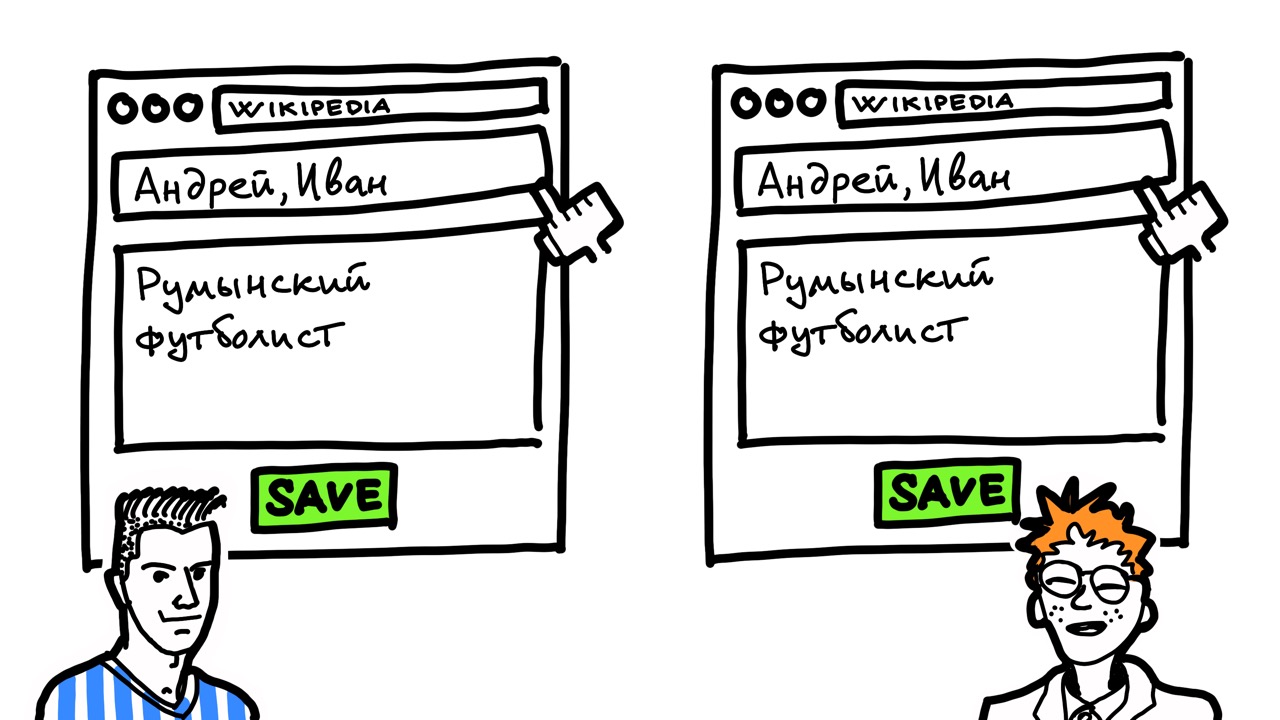 WIKIPEDIA
Андрей, Иван
Румынский
футболист
SAVE
WIKIPEDIA
Андрей, Иван
Румынский
футболист
SAVE